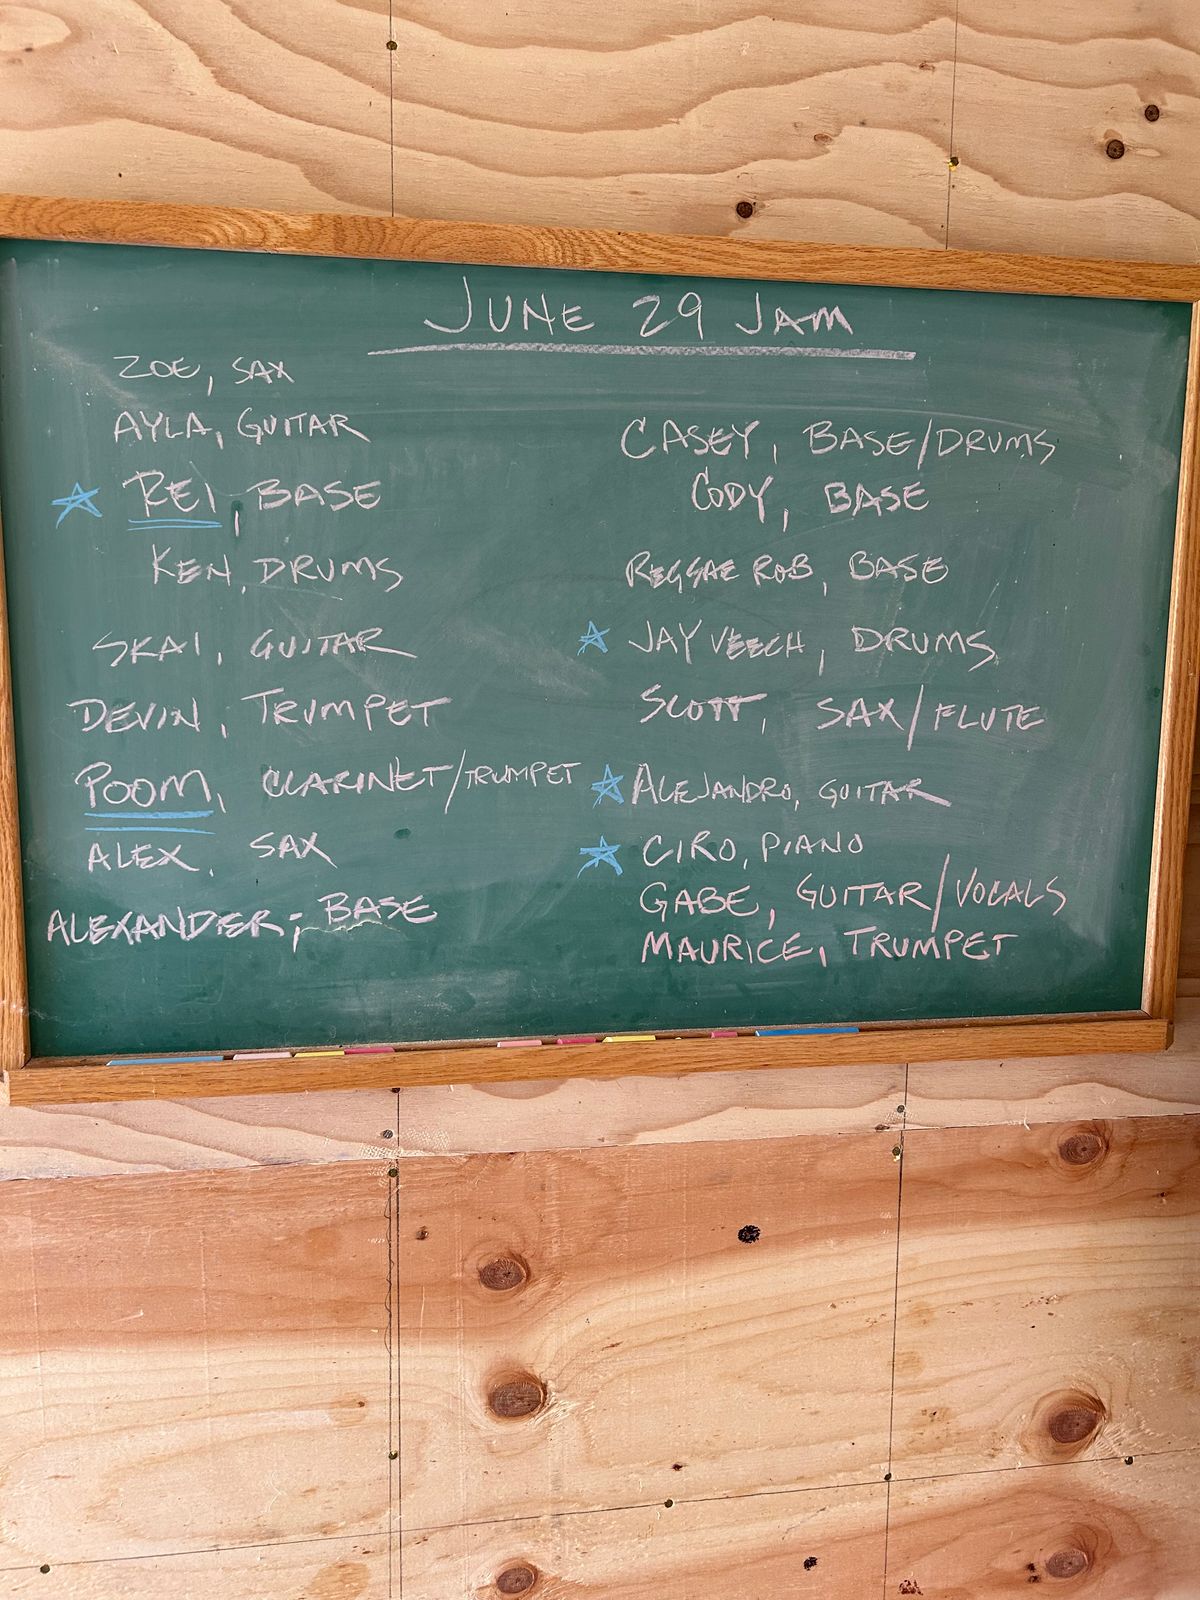 JUNE 29 JAM
ZOE, SAX
AYLA, GUITAR
REI, BASE
KEN, DRUMS
SKAI, GUITAR
DEVIN, TRUMPET
POOM, CLARINET/TRUMPET
ALEX, SAX
ALEXANDER; BASE
CASEY, BASE/DRUMS
CODY, BASE
REGGAE ROB, BASE
JAY VEECH, DRUMS
SCOTT, SAX/FLUTE
ALEJANDRO, GUITAR
CIRO, PIANO
GABE, GUITAR/VOCALS
MAURICE, TRUMPET